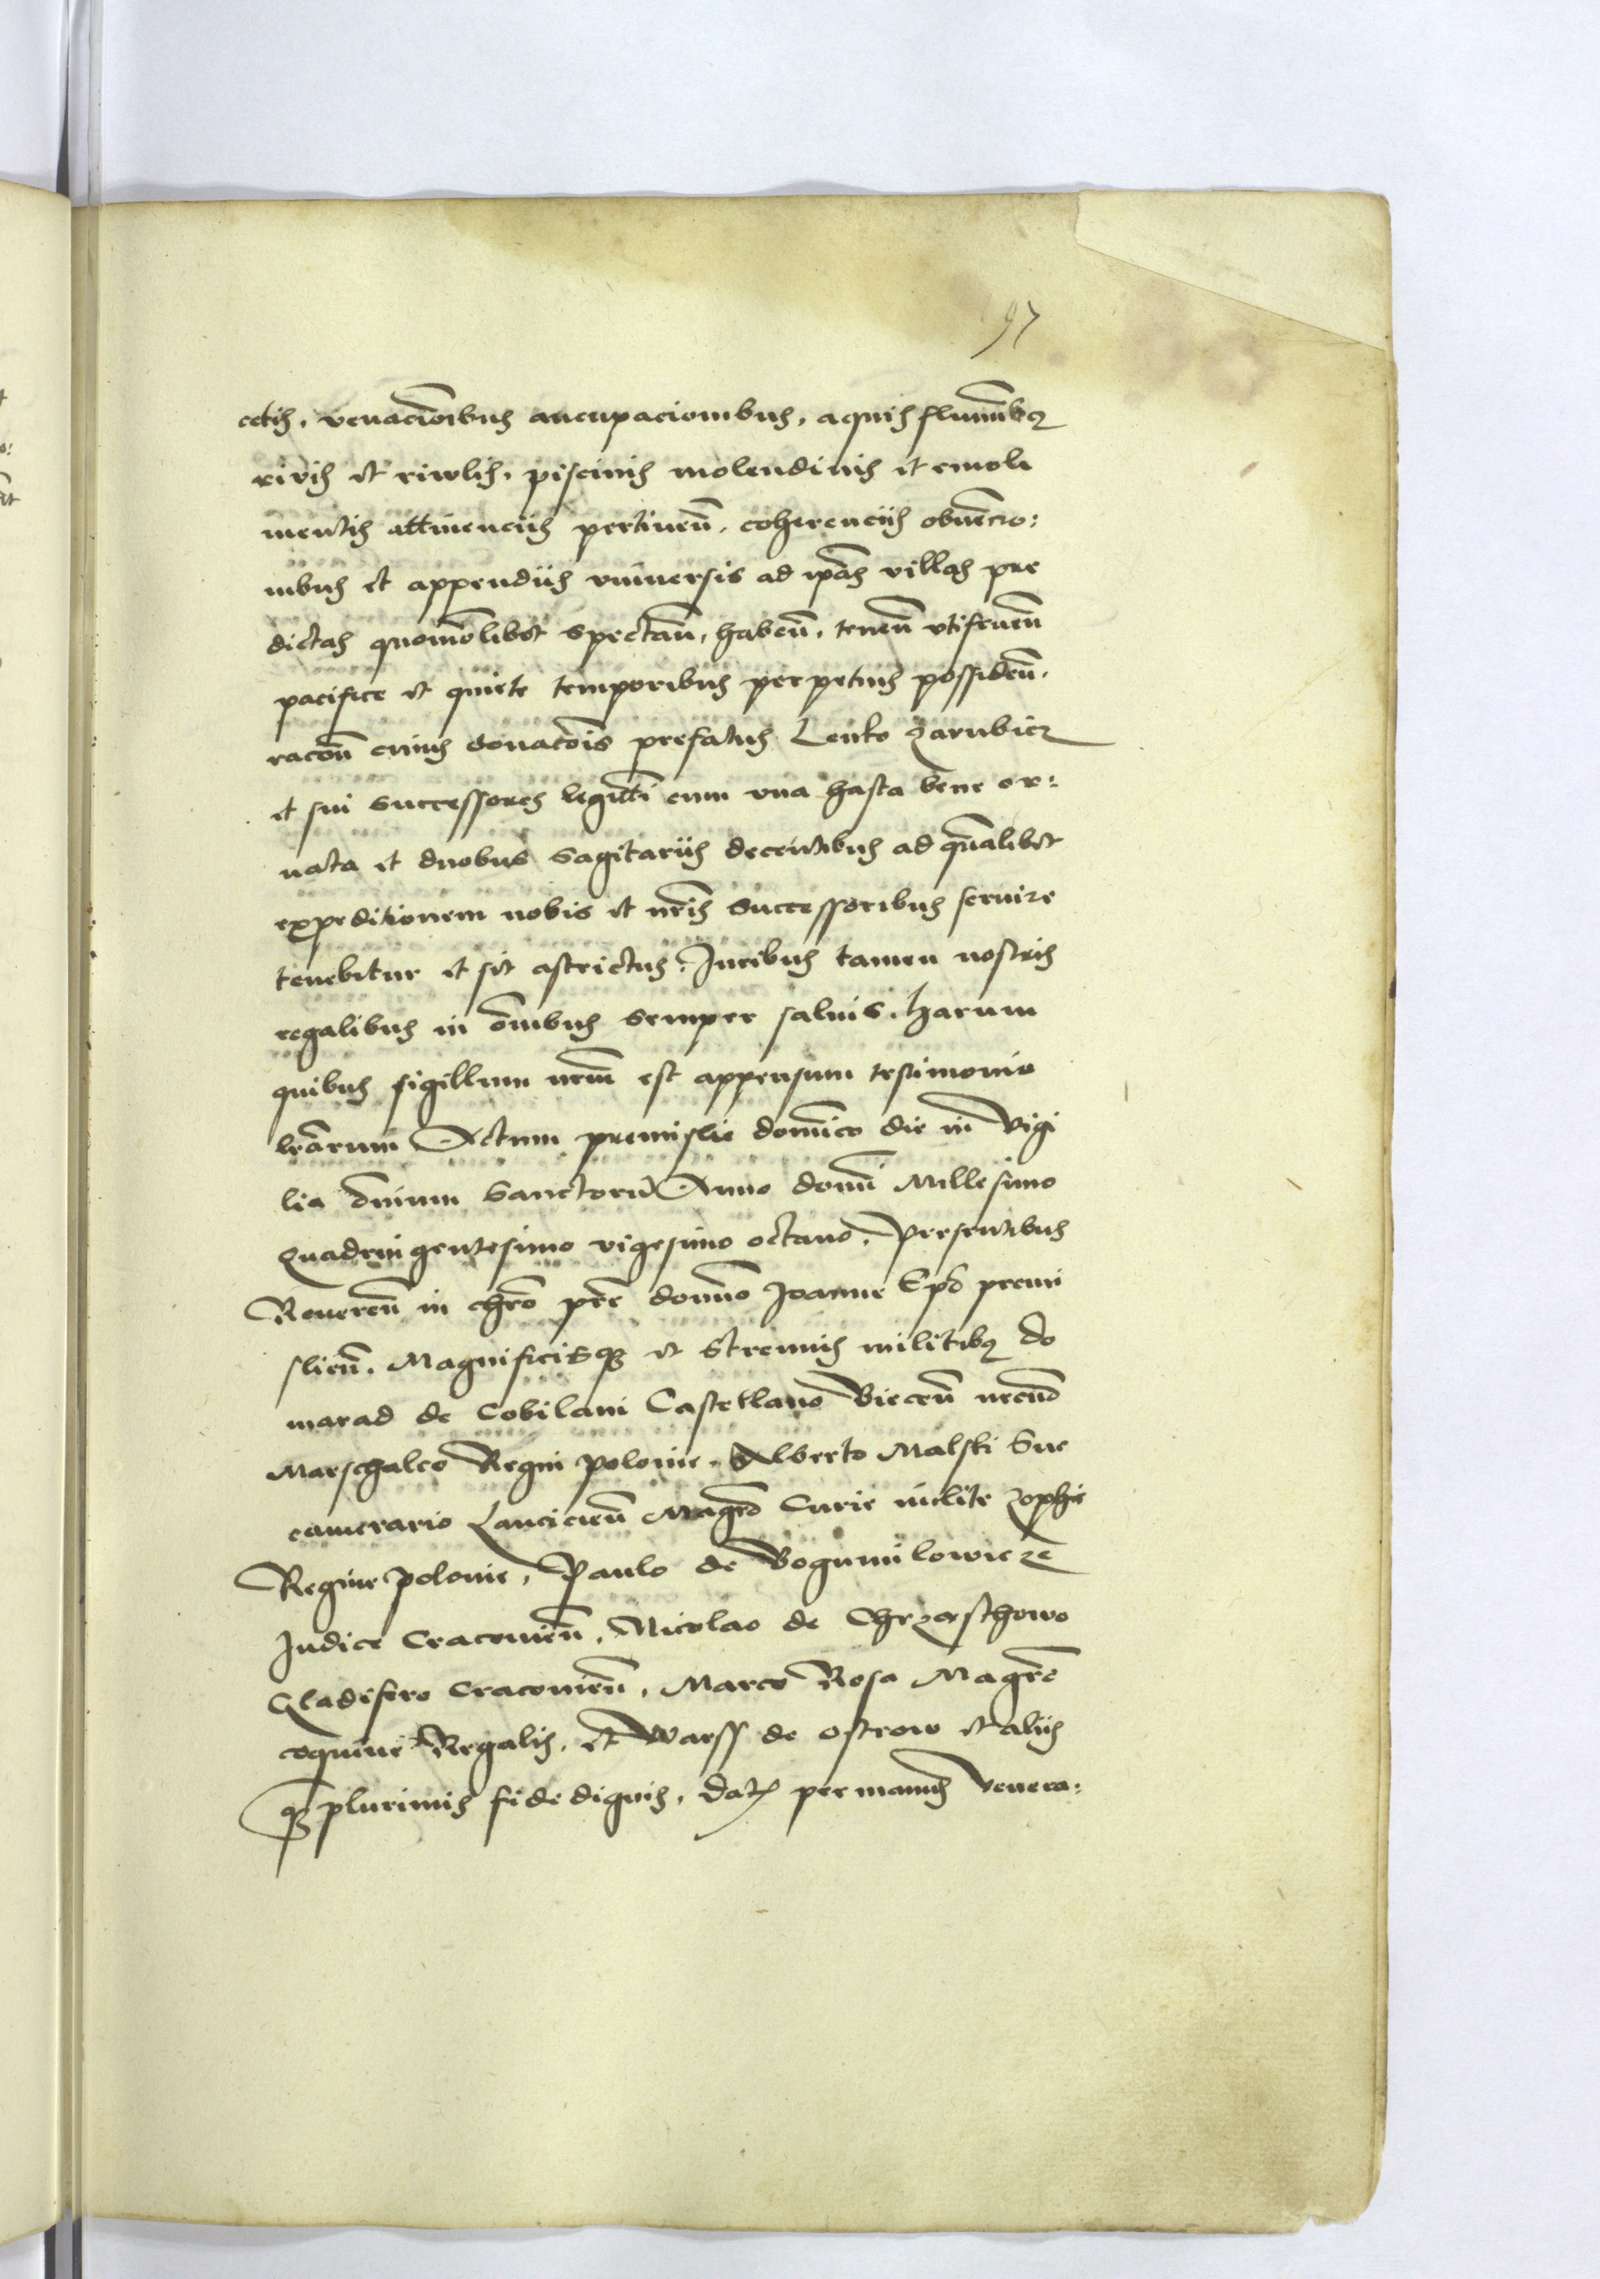 97
cetis, venacioibus aucupacionibus, aquis fluminibq
rivis et riwlis, piscinis molendinis et emoli
mentis attinenciis pertinen, coherenciis obuencio:
nibus et appendiis vniuersis ad ipas villas pre
dictas quomolibet spectan, haben, tenen vtifruen
pacifice et quiete temporibus perpetuis possiden.
racon cuius donacois prefatus Lenko Zarubicz
et sui successores legitti cum vna hasta bene or:
nata et duobus sagitariis decentibus ad qualibet
expeditionem nobis et nris successoribus seruire
tenebitur et sit astrictus. Juribus tamen nostris
regalibus in oibus semper saluis. Harum
quibus sigillum nrm est appensum testimonio
lrarum Actum premislie domico die in Vigi
lia Omium Sanctoru Anno domi Millesimo
Quadringentesimo vigesimo octauo, Presentibus
Reueren in chro pre domno Joanne Epo premi
slien. Magnificisq et Strenuis militibq Do
marad de Cobilani Castellano Biecen necno
Marschalco Regni polonie. Alberto Malski Suc
camerario Lancicien Magro Curie inclite Zophie
Regine polonie, Paulo de Bogumilowicze
Judice Cracouien, Nicolao de Chrzasthowo
Gladifero Cracouien, Marco Rosa Magro
coquine Regalis, et Warss de Ostrow et aliis
q plurimis fide dignis, Dat per manus Venera: